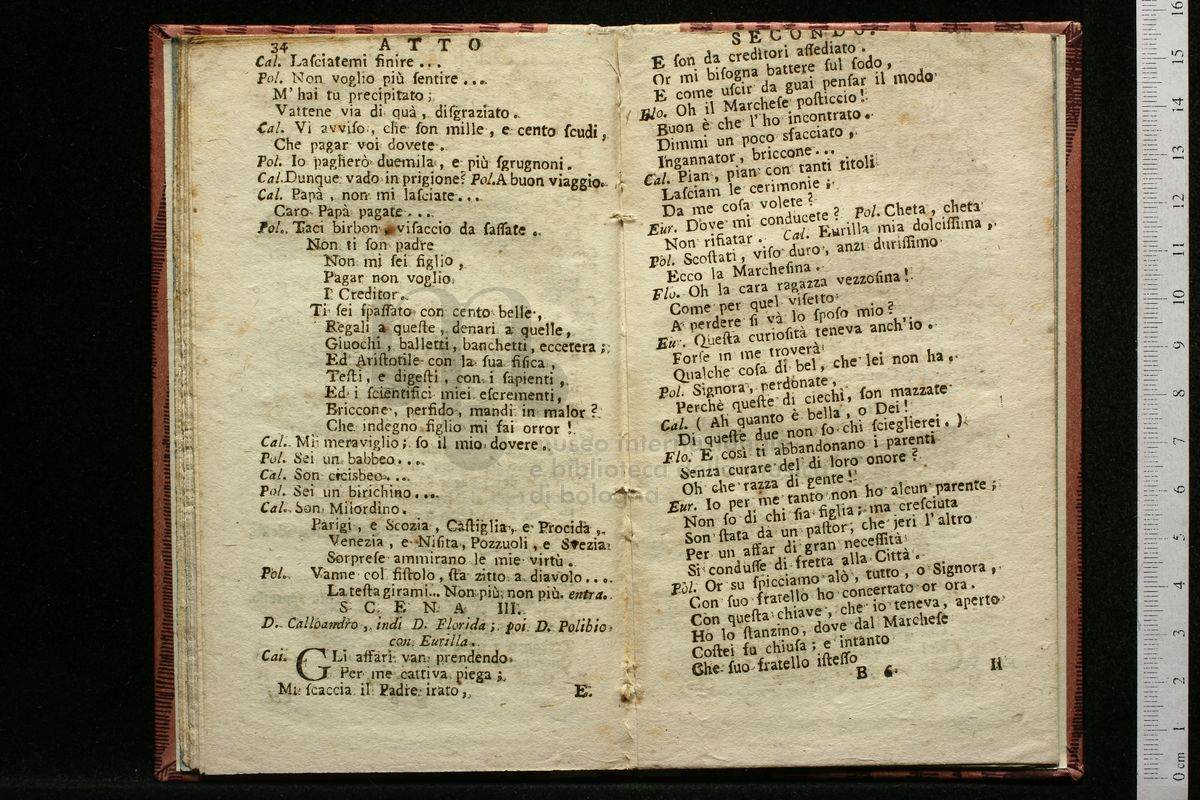 34 ATTO
Cal. Laſciatemi finire ...
Pol. Non voglio più ſentire ...
M' hai tu precipitato;
Vattene via di quà, diſgraziato.
Cal. Vi avviſo, che ſon mille, e cento ſcudi,
Che pagar voi dovete.
Pol. Io pagherò duemila, e più ſgrugnoni.
Cal. Dunque vado in prigione? Pol. A buon viaggio.
Cal. Papà, non mi laſciate ...
Caro Papà pagate ...
Pol. Taci birbon, viſaccio da ſaſſate.
Non ti ſon padre
Non mi ſei figlio,
Pagar non voglio
I Creditor.
Ti ſei ſpaſſato con cento belle,
Regali a queſte, denari a quelle,
Giuochi, balletti, banchetti, eccetera;
Ed Ariſtotile con la ſua fiſica,
Teſti, e digeſti, con i ſapienti,
Ed i ſcientifici miei eſcrementi,
Briccone, perfido, mandi in malor?
Che indegno figlio mi fai orror!
Cal. Mi meraviglio; ſo il mio dovere.
Pol. Sei un babbeo ...
Cal. Son cicisbeo ...
Pol. Sei un birichino ...
Cal. Son Milordino.
Parigi, e Scozia, Caſtiglia, e Procida,
Venezia, e Niſita, Pozzuoli, e Svezia
Sorpreſe ammirano le mie virtù.
Pol. Vanne col fiſtolo, ſta zitto a diavolo ...
La teſta girami... Non più, non più. entra.
SCENA III.
D. Calloandro, indi D. Florida; poi D. Polibio
con Eurilla.
Cal. GLi affari van prendendo
Per me cattiva piega;
Mi ſcaccia il Padre irato,
E
SECONDO.
E ſon da creditori aſſediato.
Or mi biſogna battere ſul ſodo,
E come uſcir da guai penſar il modo
Flo. Oh il Marcheſe poſticcio!
Buon è che l'ho incontrato.
Dimmi un poco sfacciato,
Ingannator, briccone...
Cal. Pian, pian con tanti titoli
Laſciam le cerimonie;
Da me coſa volete?
Eur. Dove mi conducete? Pol. Cheta, cheta
Non rifiatar. Cal. Eurilla mia dolciſſima,
Pol. Scoſtati, viſo duro, anzi duriſſimo
Ecco la Marcheſina.
Flo. Oh la cara ragazza vezzoſina!
Come per quel viſetto
A perdere ſi và lo ſpoſo mio?
Eur. Queſta curioſità teneva anch'io.
Forſe in me troverà
Qualche coſa di bel, che lei non ha.
Pol. Signora, perdonate,
Perchè queſte di ciechi, ſon mazzate
Cal. ( Ah quanto è bella, o Dei!
Di queſte due non ſo chi ſcieglierei. )
Flo. E così ti abbandonano i parenti
Senza curare del di loro onore?
Oh che razza di gente!
Eur. Io per me tanto non ho alcun parente;
Non ſo di chi ſia figlia; ma creſciuta
Son ſtata da un paſtor; che jeri l'altro
Per un affar di gran neceſſità
Si conduſſe di fretta alla Città.
Pol. Or su ſpicciamo alò, tutto, o Signora,
Con ſuo fratello ho concertato or ora.
Con queſta chiave, che io teneva, aperto
Ho lo ſtanzino, dove dal Marcheſe
Coſtei fu chiuſa; e intanto
Che ſuo fratello iſteſſo
B 6. Il
museo inter
e biblioteca
di bologna